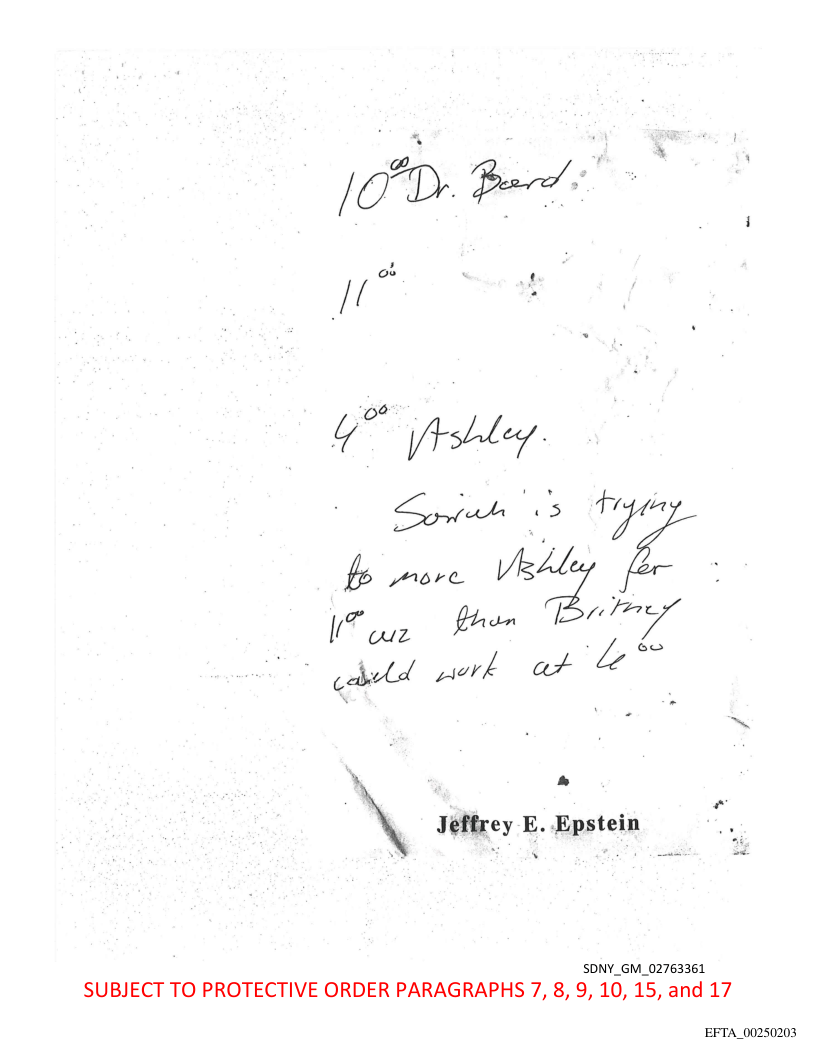 10⁰⁰ Dr. Bard
11⁰⁰
4⁰⁰ Ashley.
is trying
to move Ashley for
11⁰⁰ cuz than Britney
could work at 4⁰⁰
Jeffrey E. Epstein
SDNY_GM_02763361
SUBJECT TO PROTECTIVE ORDER PARAGRAPHS 7, 8, 9, 10, 15, and 17
EFTA_00250203